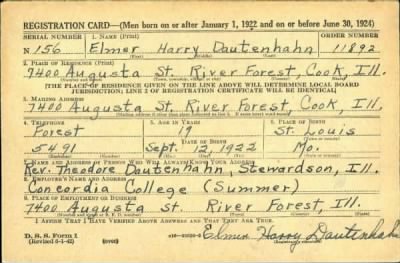 REGISTRATION CARD—(Men born on or after January 1, 1922 and on or before June 30, 1924)
SERIAL NUMBER 1. NAME (Print) ORDER NUMBER
N 156 Elmer Harry Dautenhahn 11892
(First) (Middle) (Last)
2. PLACE OF RESIDENCE (Print)
7400 Augusta St. River Forest, Cook, Ill.
(Number and street) (Town, township, village, or city) (County) (State)
[THE PLACE OF RESIDENCE GIVEN ON THE LINE ABOVE WILL DETERMINE LOCAL BOARD
JURISDICTION; LINE 2 OF REGISTRATION CERTIFICATE WILL BE IDENTICAL]
3. MAILING ADDRESS
7400 Augusta St. River Forest, Cook, Ill.
4. TELEPHONE 5. AGE IN YEARS 6. PLACE OF BIRTH
Forest 19 St. Louis
DATE OF BIRTH
5491 Sept. 12, 1922 Mo.
7. NAME AND ADDRESS OF PERSON WHO WILL ALWAYS KNOW YOUR ADDRESS
Rev. Theodore Dautenhahn, Stewardson, Ill.
8. EMPLOYER'S NAME AND ADDRESS
Concordia College (Summer)
9. PLACE OF EMPLOYMENT OR BUSINESS
7400 Augusta St. River Forest, Ill.
I AFFIRM THAT I HAVE VERIFIED ABOVE ANSWERS AND THAT THEY ARE TRUE.
D. S. S. Form 1 (over) Elmer Harry Dautenhahn
(Revised 6-1-42) (Registrant's signature)